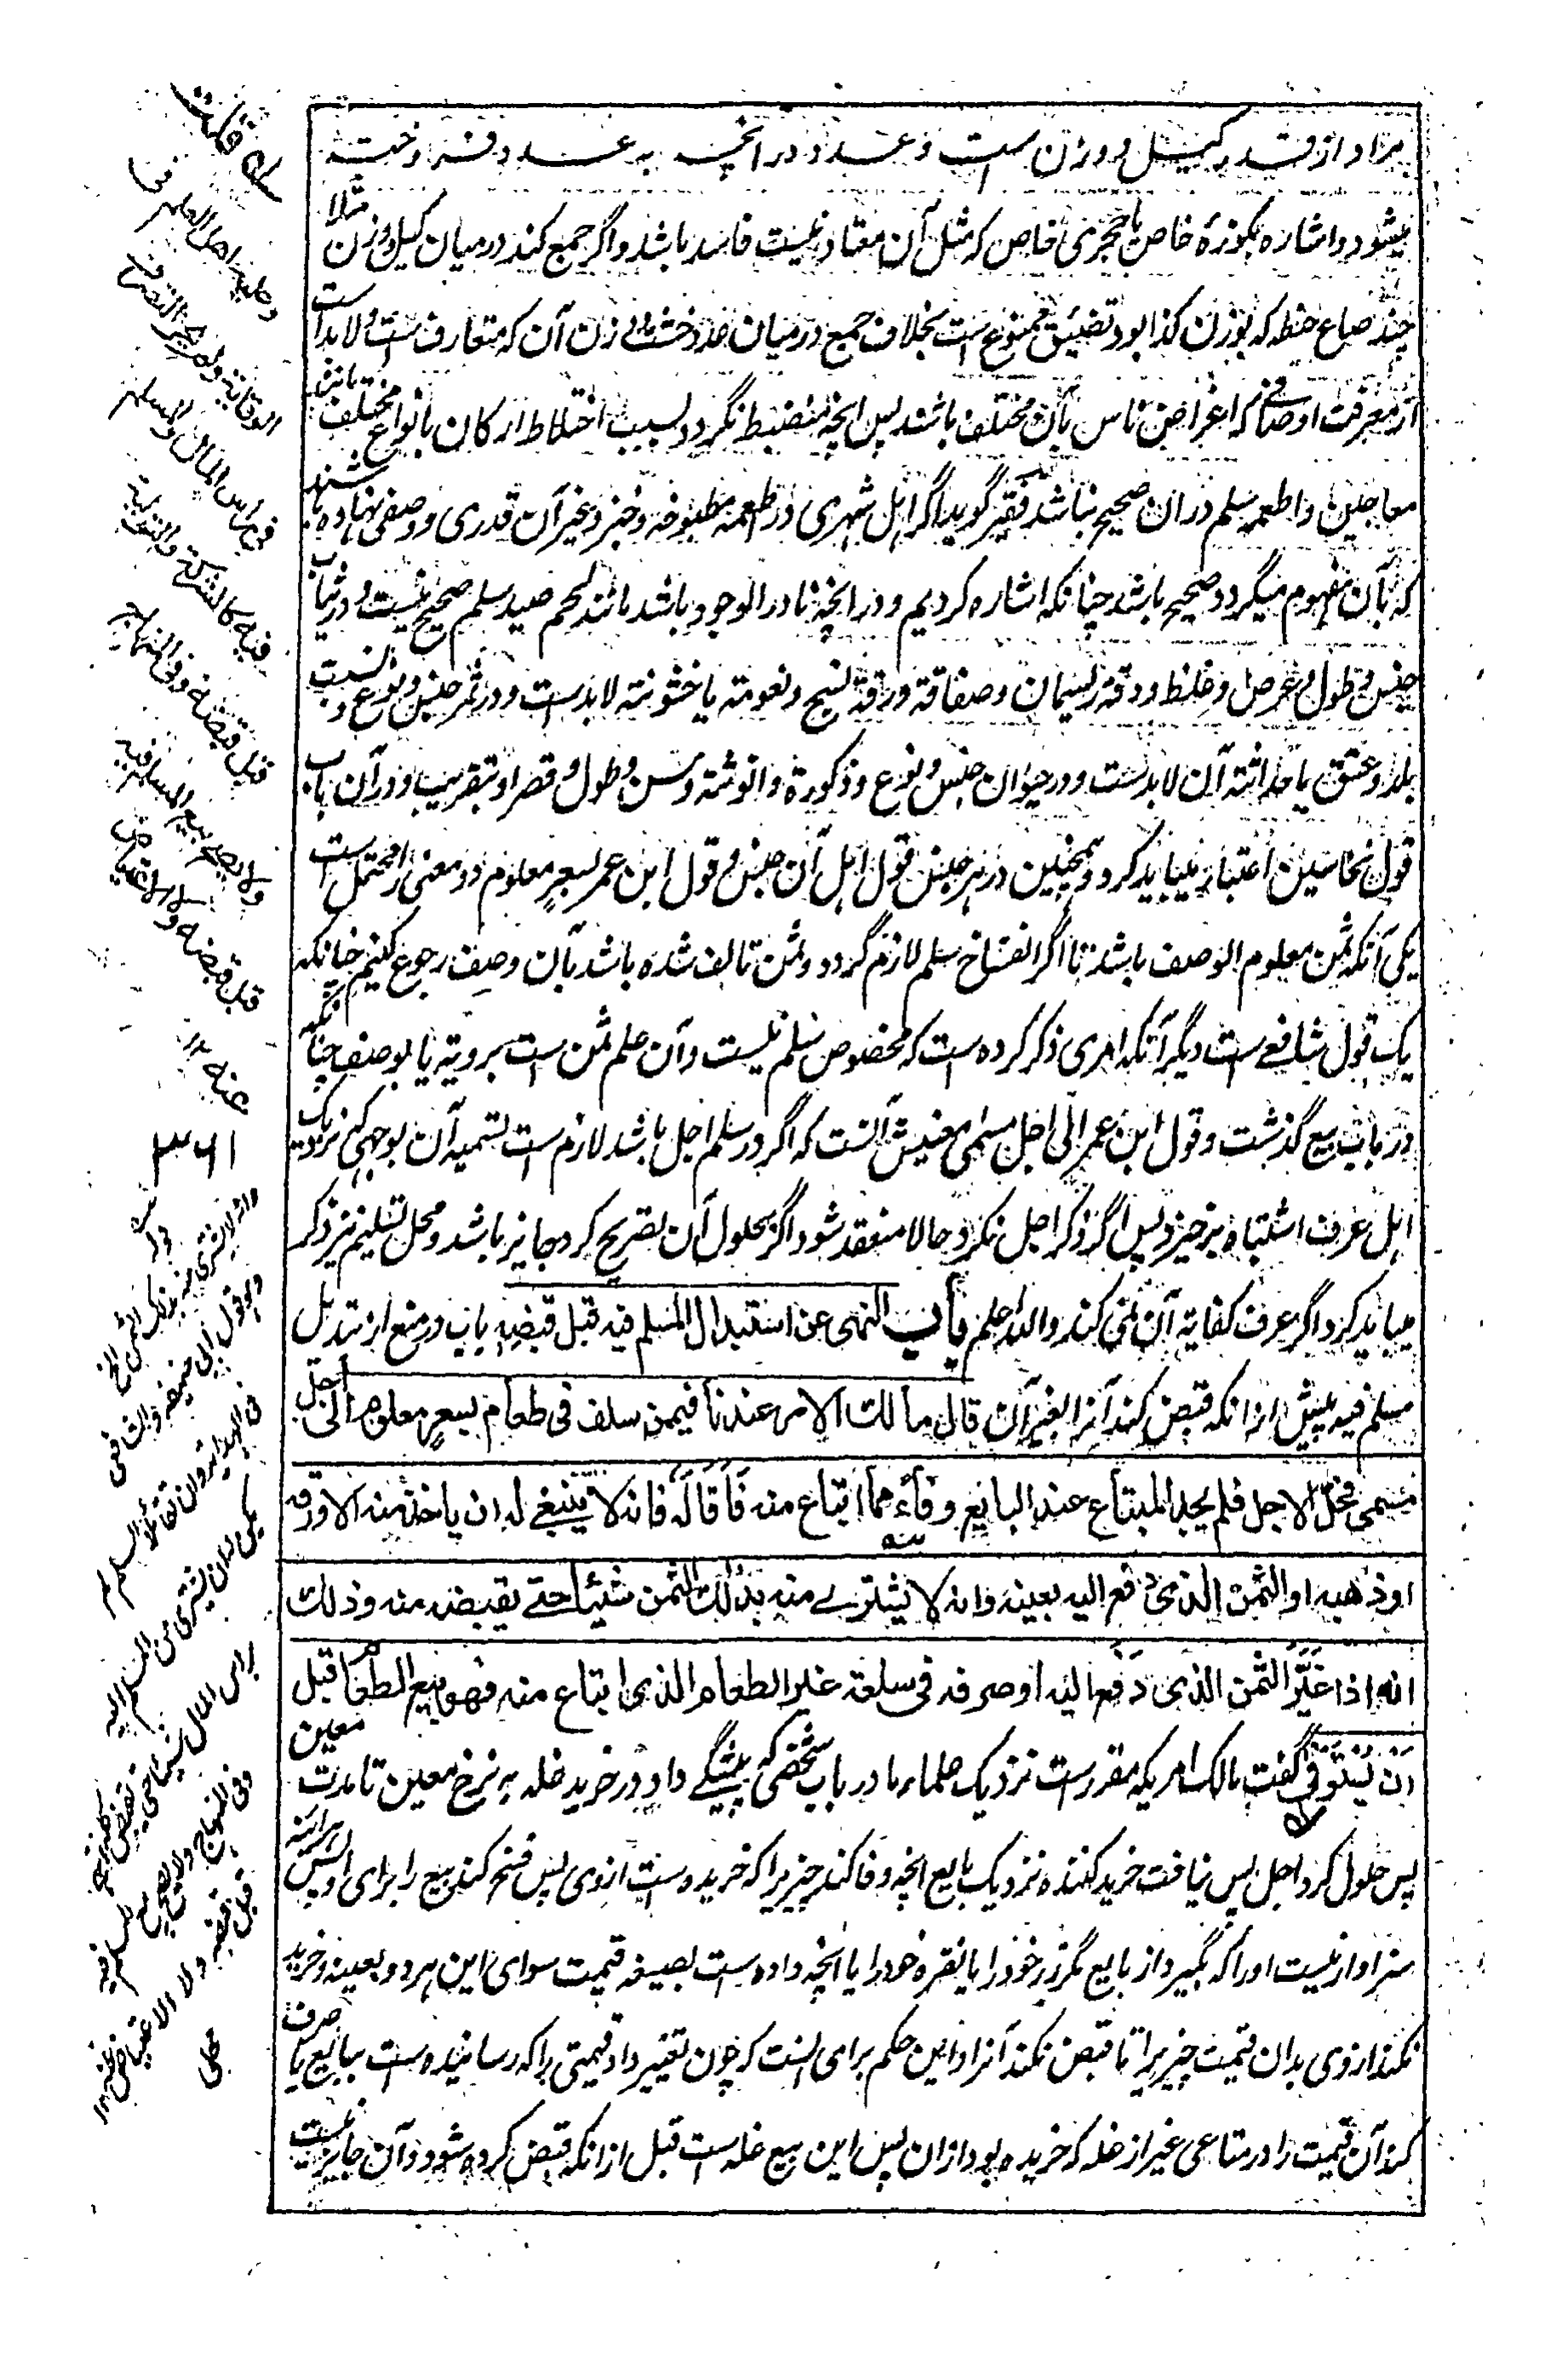 مراد از قدر کیل و وزن است و عدد در انچه به عدد فروخته
میشود و اشاره بکوزهٔ خاص یا حجری خاص که مثل آن معتاد نیست فاسد باشد و اگر جمع کند درمیان کیل و وزن مثلا
چند صاع حنطه که بوزن کذا بود تضییق ممنوع است بخلاف جمع درمیان عدد خشت و وزن آن که متعارف است و لابد است
از معرفت اوصافی که اغراض ناس بآن مختلف باشند پس انچه منضبط نگردد بسبب اختلاط ارکان بانواع مختلف مانند
معاجین و اطعمه سلم دران صحیح نباشد فقیر گوید اگر اهل شهری در اطعمه مطبوخه و خبز و غیر آن قدری و وصفی نهاده باشند
که بآن مفهوم میگردد صحیح باشد چنانکه اشاره کردیم و در انچه نادر الوجود باشد مانند لحم صید سلم صحیح نیست و در ثیاب
جنس و طول و عرض و غلظ و دقة ریسمان و صفاقة و رقة نسیج و نعومة یا خشونة لابدست و در ثمر جنس و نوع و نسبت
بلد و عتق یا حداثة آن لابدست و در حیوان جنس و نوع و ذکورة و انوثة و سن و طول و قصر او بتقریب و در آن باب
قول نخاسین اعتبار میباید کرد و همچنین در هر جنس قول اهل آن جنس و قول ابن عمر بسعر معلوم دو معنی را محتمل است
یکی آنکه ثمن معلوم الوصف باشد تا اگر انفساخ سلم لازم گردد و ثمن تالف شده باشد بآن وصف رجوع کنیم چنانکه
یک قول شافعی ست دیگر آنکه امری ذکر کرده ست که مخصوص سلم نیست و آن علم ثمن ست برویة یا بوصف چنانکه
در باب بیع گذشت و قول ابن عمر الی اجل مسمی معنیش آنست که اگر در سلم اجل باشد لازم ست تسمیه آن بوجهی که نزدیک
اهل عرف اشتباه برخیزد پس اگر ذکر اجل نکرد حالا منعقد شود و اگر بحلول آن تصریح کرد جایز باشد و محل تسلیم نیز ذکر
میباید کرد اگر عرف کفایة آن نمی کند والله اعلم باب النهی عن استبدال المسلم فیه قبل قبضه باب در منع از تبدیل
مسلم فیه پیش ازانکه قبض کند آنرا بغیر آن قال مالك الامر عندنا فیمن سلف فی طعام بسعر معلوم الی اجل
مسمی فحل الاجل فلم یجد المبتاع عند البایع وفاء مما ابتاع منه فاقاله فانه لا ینبغی له ان یاخذ منه الا ورقه
او ذهبه او الثمن الذی دفع الیه بعینه وانه لا یشتری منه بذلك الثمن شیئا حتی یقبضه منه وذلك
انه اذا غیر الثمن الذی دفع الیه او صرفه فی سلعة غیر الطعام الذی ابتاع منه فهو بیع الطعام قبل
ان یستوفی گفت مالک امریکه مقررست نزدیک علماء ما در باب شخصی که پیشگی داد در خرید غله به نرخ معین تا مدت معین
پس حلول کرد اجل پس نیافت خرید کننده نزدیک بایع انچه وفا کند چیزیرا که خریده ست ازوی پس فسخ کند بیع را برای او پس هرآئنه
سزاوار نیست او را که بگیرد از بایع مگر زر خود را یا نقره خود را یا انچه داده ست بصیغه قیمت سوای این هر دو بعینه و خرید
نکند ازوی بدان قیمت چیزیرا تا قبض نکند آنرا و این حکم برای آنست که چون تغییر داد قیمتی را که رسانیده ست ببایع یا صرف
کند آن قیمت را در متاعی غیر از غله که خریده بود ازان پس این بیع غله ست قبل ازانکه قبض کرده شود و آن جایز نیست
قلت
وعلیه اهل العلم فی
الوقایة ولم یجز التصرف
فی راس المال والمسلم
فیه کالشرکة والتولیة
قبل قبضه وفی المنهاج
ولا یصح بیع المسلم فیه
قبل قبضه ولا الاعتیاض
عنه ۱۲
۳۶۱
قوله
وانه لا یشتری منه بذلک الثمن الخ
وهو قول ابی حنیفه والشافعی
فی الهدایة وان تقایلا السلم لم
یکن له ان یشتری من المسلم الیه
براس المال شیئا حتی یقبض کله
وفی المنهاج ولا یصح بیع المسلم فیه
قبل قبضه ولا الاعتیاض عنه ۱۲
محلی